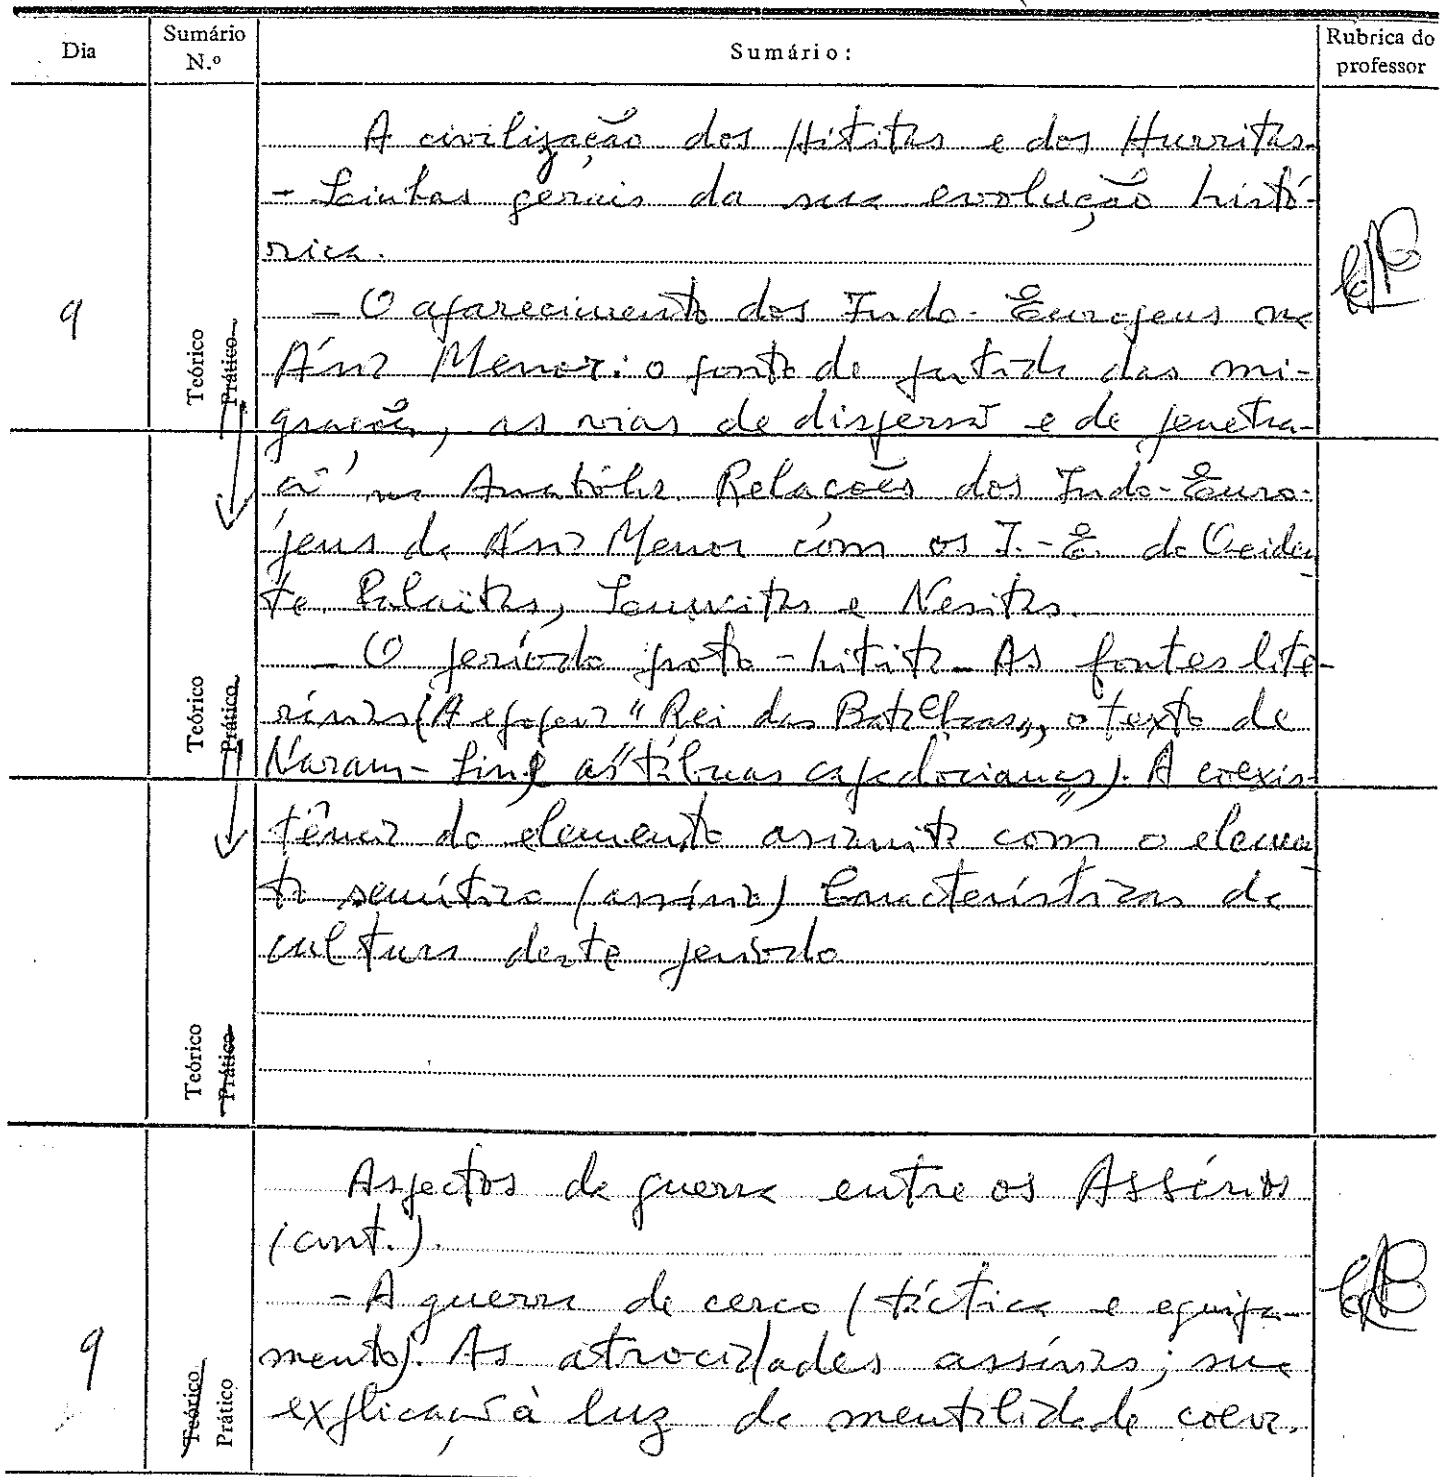 Dia
Sumário N.º
Sumário:
Rubrica do professor
A civilização dos Hititas e dos Hurritas.
- Linhas gerais da sua evolução histó-
rica.
9
Teórico
Prático
- O aparecimento dos Indo-Europeus na
Ásia Menor: o ponto de partida das mi-
grações, as vias de dispersão e de penetra-
ção na Anatólia. Relações dos Indo-Euro-
peus da Ásia Menor com os I.-E. do Ociden
te. Palaítas, Louvitas e Nesitas.
Teórico
Prático
- O período proto-hitita. As fontes lite-
rárias (A epopeia "Rei das Batalhas", o texto de
Naram-Sin e as "tábuas capadocianas"). A coexis-
tência do elemento asiânita com o elemen
to semítico (assírio) Características da
cultura deste período
Teórico
Prático
Aspectos da guerra entre os Assírios
(cont.).
- A guerra de cerco (táctica e equipa-
mento). As atrocidades assírias; sua
explicação à luz da mentalidade coeva.
9
Teórico
Prático